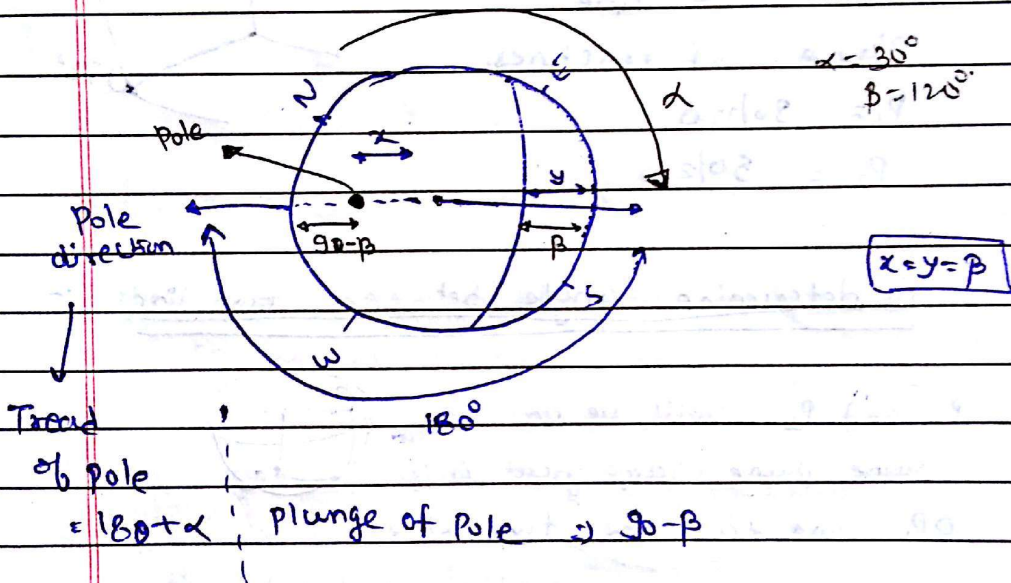 α = 30°
β = 120°
N
E
α
Pole
x
y
Pole
direction
90-β
β
x=y=β
S
W
180°
Trend
of pole
= 180+α
plunge of Pole => 90-β